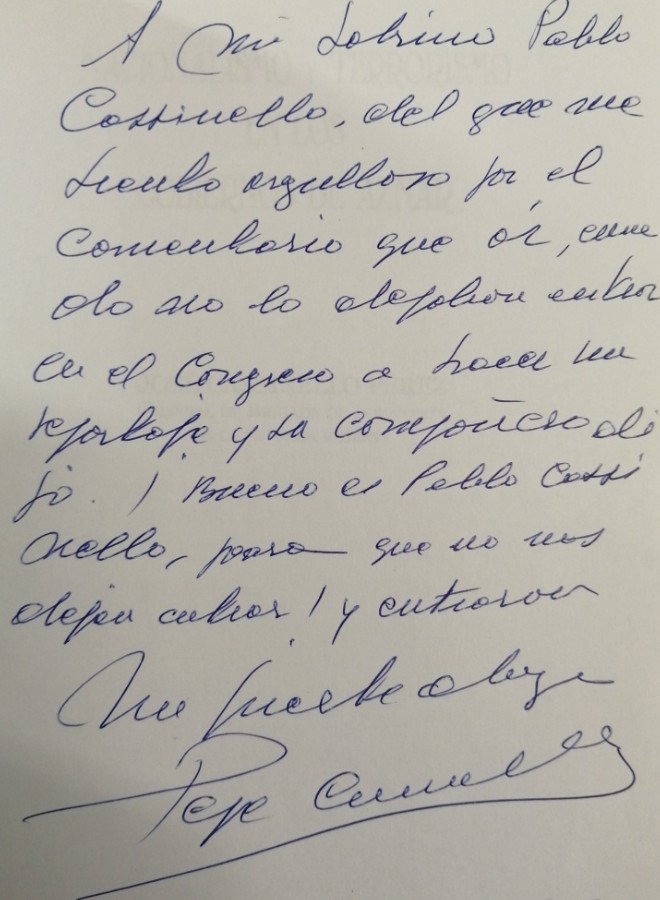 A mi sobrino Pablo
Cassinello, del que me
siento orgulloso por el
comentario que oí, cuan
do no lo dejaban entrar
en el Congreso a hacer un
reportaje y su compañero di
jo. ¡Bueno es Pablo Cassi
nello, para que no nos
dejen entrar! y entraron
Un fuerte abrazo
Pepe